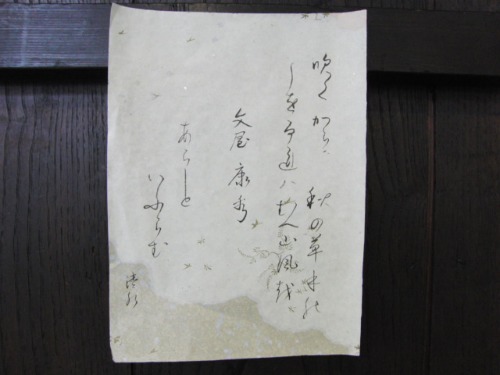 吹くからに 秋の草木の
しをるれハむへ山風越
文屋康秀
あらしと
いふらむ